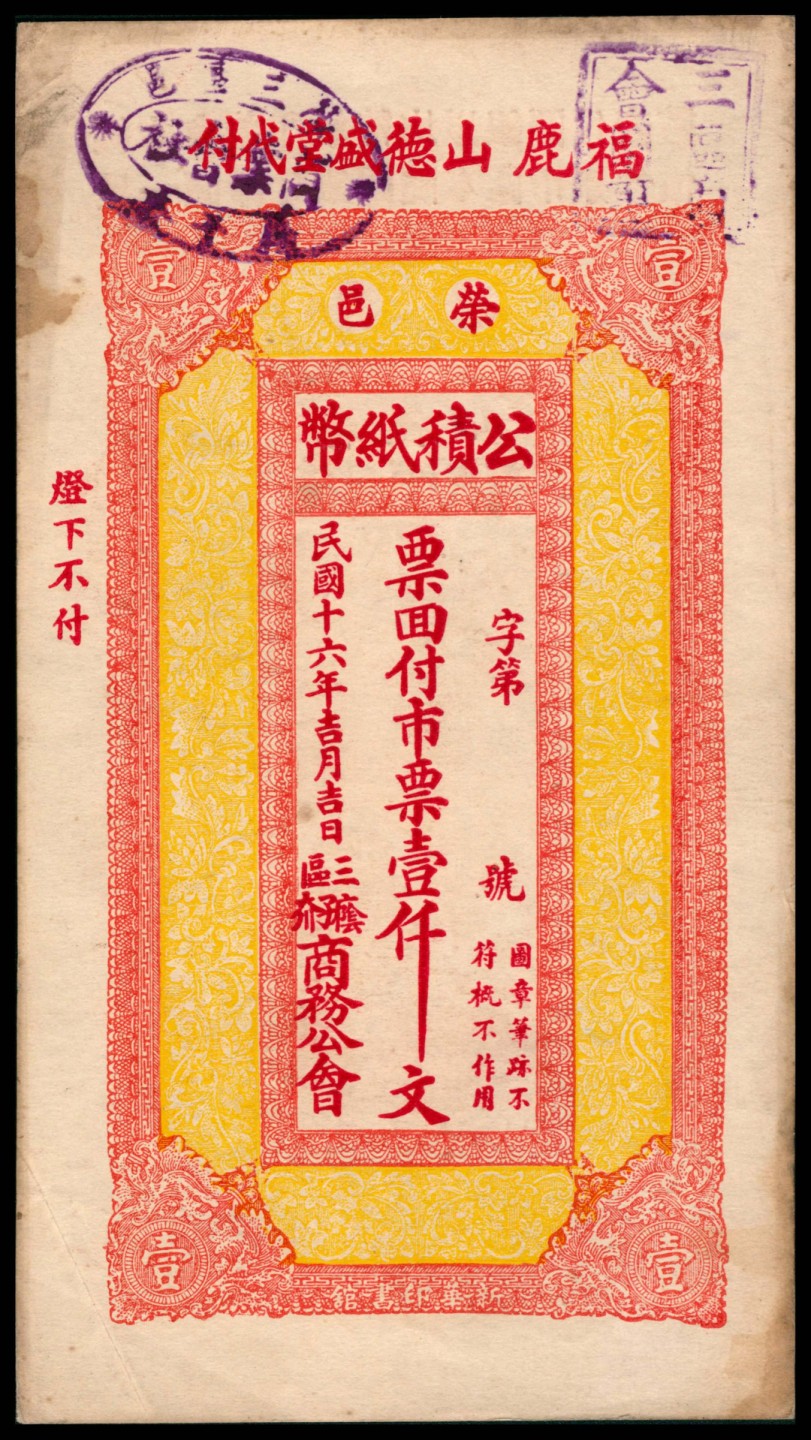 福鹿山德盛堂代付
榮邑
公積紙幣
字第
號
圖章筆跡不
符概不作用
票回付市票壹仟文
民國十六年吉月吉日
三區
商務公會
燈下不付
壹
壹
壹
壹
新華印書館